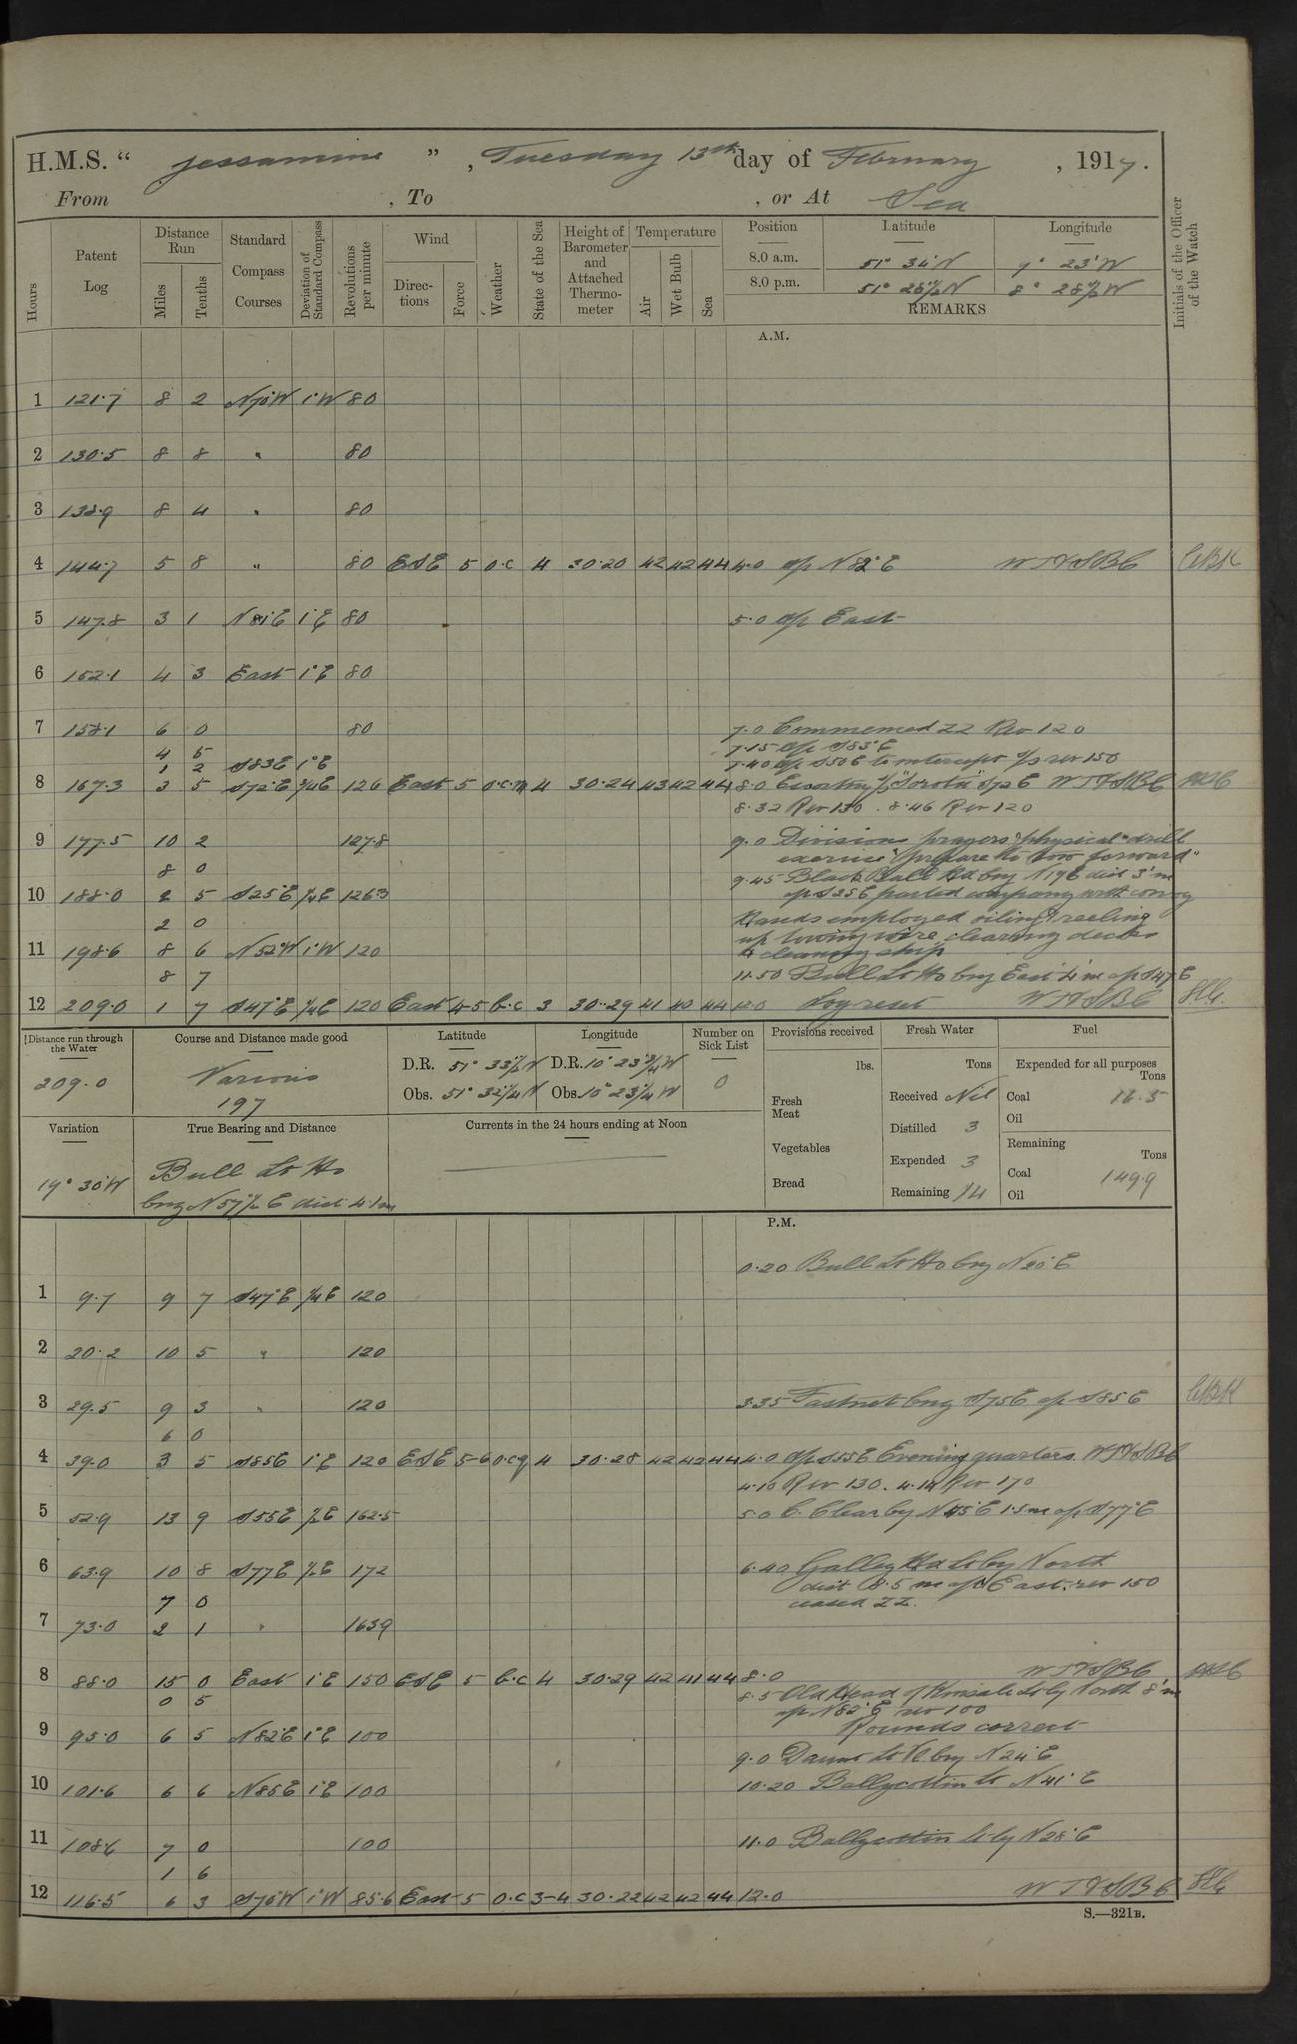 H.M.S. " Jessamine " , Tuesday 13th day of February , 1917.
From , To , or At Sea
Hours
Patent Log
Distance Run
Miles
Tenths
Standard Compass Courses
Deviation of Standard Compass
Revolutions per minute
Wind
Direc-tions
Force
Weather
State of the Sea
Height of Barometer and Attached Thermo-meter
Temperature
Air
Wet Bulb
Sea
Position
Latitude
Longitude
8.0 a.m. 51° 34' N 9° 23' W
8.0 p.m. 51° 28½ N 8° 28½ W
REMARKS
Initials of the Officer of the Watch
A.M.
1 121.7 8 2 N70W 1°W 80
2 130.5 8 8 " 80
3 138.9 8 4 " 80
4 144.7 5 8 " 80 ESE 5 o.c 4 30.20 42 42 44 4.0 a/c N 82°E W T & S B C
5 147.8 3 1 N81°E 1°E 80 5.0 a/c East
6 152.1 4 3 East 1°E 80
7 158.1 6 0 80 7.0 Commenced ZZ Rev 120
4 5 7.15 a/c S83°E
1 2 S83E 1°E 7.40 a/c S50E to intercept s/s rev 150
8 167.3 3 5 S72°E ¾E 126 East 5 o.c.m 4 30.24 43 42 44 8.0 S72E W T & S B C
8.32 Rev 130 . 8.46 Rev 120
9 177.5 10 2 127.8 9.0 Divisions prayers & physical drill
exercise "prepare to tow forward"
8 0 9.45 Black Ball Hd brg N19E dist 3'm
10 188.0 2 5 S25°E ¼E 126.3 a/c S25E parted company with convoy
2 0 Hands employed oiling & reeling
up towing wire clearing decks
11 198.6 8 6 N52W 1°W 120 & cleaning ship
8 7 11.50 Bull Lt Ho brg East 4'm a/c S47E
12 209.0 1 7 S47°E ¼E 120 East 4-5 b.c 3 30.29 41 40 44 12.0 Log reset W T & S B C
Distance run through the Water
209.0
Course and Distance made good
Various
197
Latitude
D.R. 51° 33½ N
Obs. 51° 32¼ N
Longitude
D.R. 10° 23¾ W
Obs. 10° 23¼ W
Number on Sick List
0
Provisions received
lbs.
Fresh Meat
Vegetables
Bread
Fresh Water
Tons
Received Nil
Distilled 3
Expended 3
Remaining 14
Fuel
Expended for all purposes
Tons
Coal 16.5
Oil
Remaining
Tons
Coal 149.9
Oil
Variation
19° 30'W
True Bearing and Distance
Bull Lt Ho
brg N57½E dist 4.1m
Currents in the 24 hours ending at Noon
P.M.
0.20 Bull Lt Ho brg N20°E
1 9.7 9 7 S47°E ¼E 120
2 20.2 10 5 " 120
3 29.5 9 3 " 120 3.35 Fastnet brg S75E a/c S85E
6 0
4 39.0 3 5 S85E 1°E 120 ESE 5-6 o.c.q 4 30.28 42 42 44 4.0 a/c S55E Evening quarters. W T & S B C
4.10 Rev 130. 4.14 Rev 170
5 52.9 13 9 S55E ½E 162.5 5.0 C. Clear by N45°E 1.5m a/c S77°E
6 63.9 10 8 S77E ½E 172 6.40 Galley Hd Lt by North
dist 8.5 m a/c East. rev 150
7 0 ceased ZZ.
7 73.0 2 1 " 163.9
8 88.0 15 0 East 1°E 150 ESE 5 b.c 4 30.29 42 41 44 8.0 W T & S B C
0 5 8.5 Old Head of Kinsale Lt by North 8'm
a/c N82°E rev 100
9 95.0 6 5 N82E 1°E 100 Rounds correct
9.0 Daunt Lt Vl brg N24°E
10 101.6 6 6 N85E 1°E 100 10.20 Ballycottin Lt N41°E
11 108.6 7 0 100 11.0 Ballycottin Lt by N28°E
1 6
12 116.5 6 3 S70W 1°W 85.6 East 5 o.c 3-4 30.22 42 42 44 12.0 W T & S B C
S.—321B.